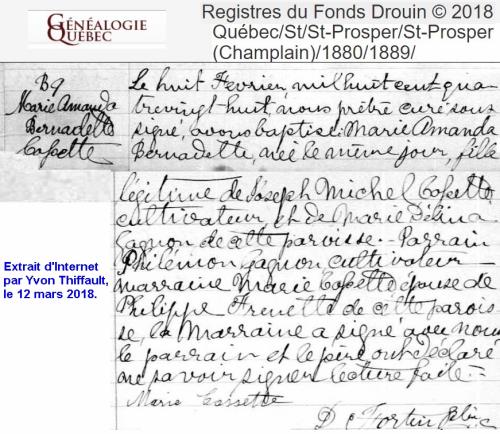 GÉNÉALOGIE
QUÉBEC
Registres du Fonds Drouin © 2018
Québec/St/St-Prosper/St-Prosper
(Champlain)/1880/1889/
B9
Marie Amanda
Bernadette
Cossette
Le huit Fevrier, mil huit cent qua
tre vingt huit, nous prêtre curé sous
signé, avons baptisé Marie Amanda
Bernadette, née le même jour, fille
légitime de Joseph Michel Cossette
cultivateur et de Marie Délina
Gagnon de cette paroisse. Parrain
Philémon Gagnon cultivateur
marraine Marie Cossette épouse de
Philippe Frenette de cette parois
se, la Marraine a signé avec nous
le parrain et le père ont déclaré
ne savoir signer lecture faite
Marie Cossette
D c Fortin
Extrait d'Internet
par Yvon Thiffault,
le 12 mars 2018.